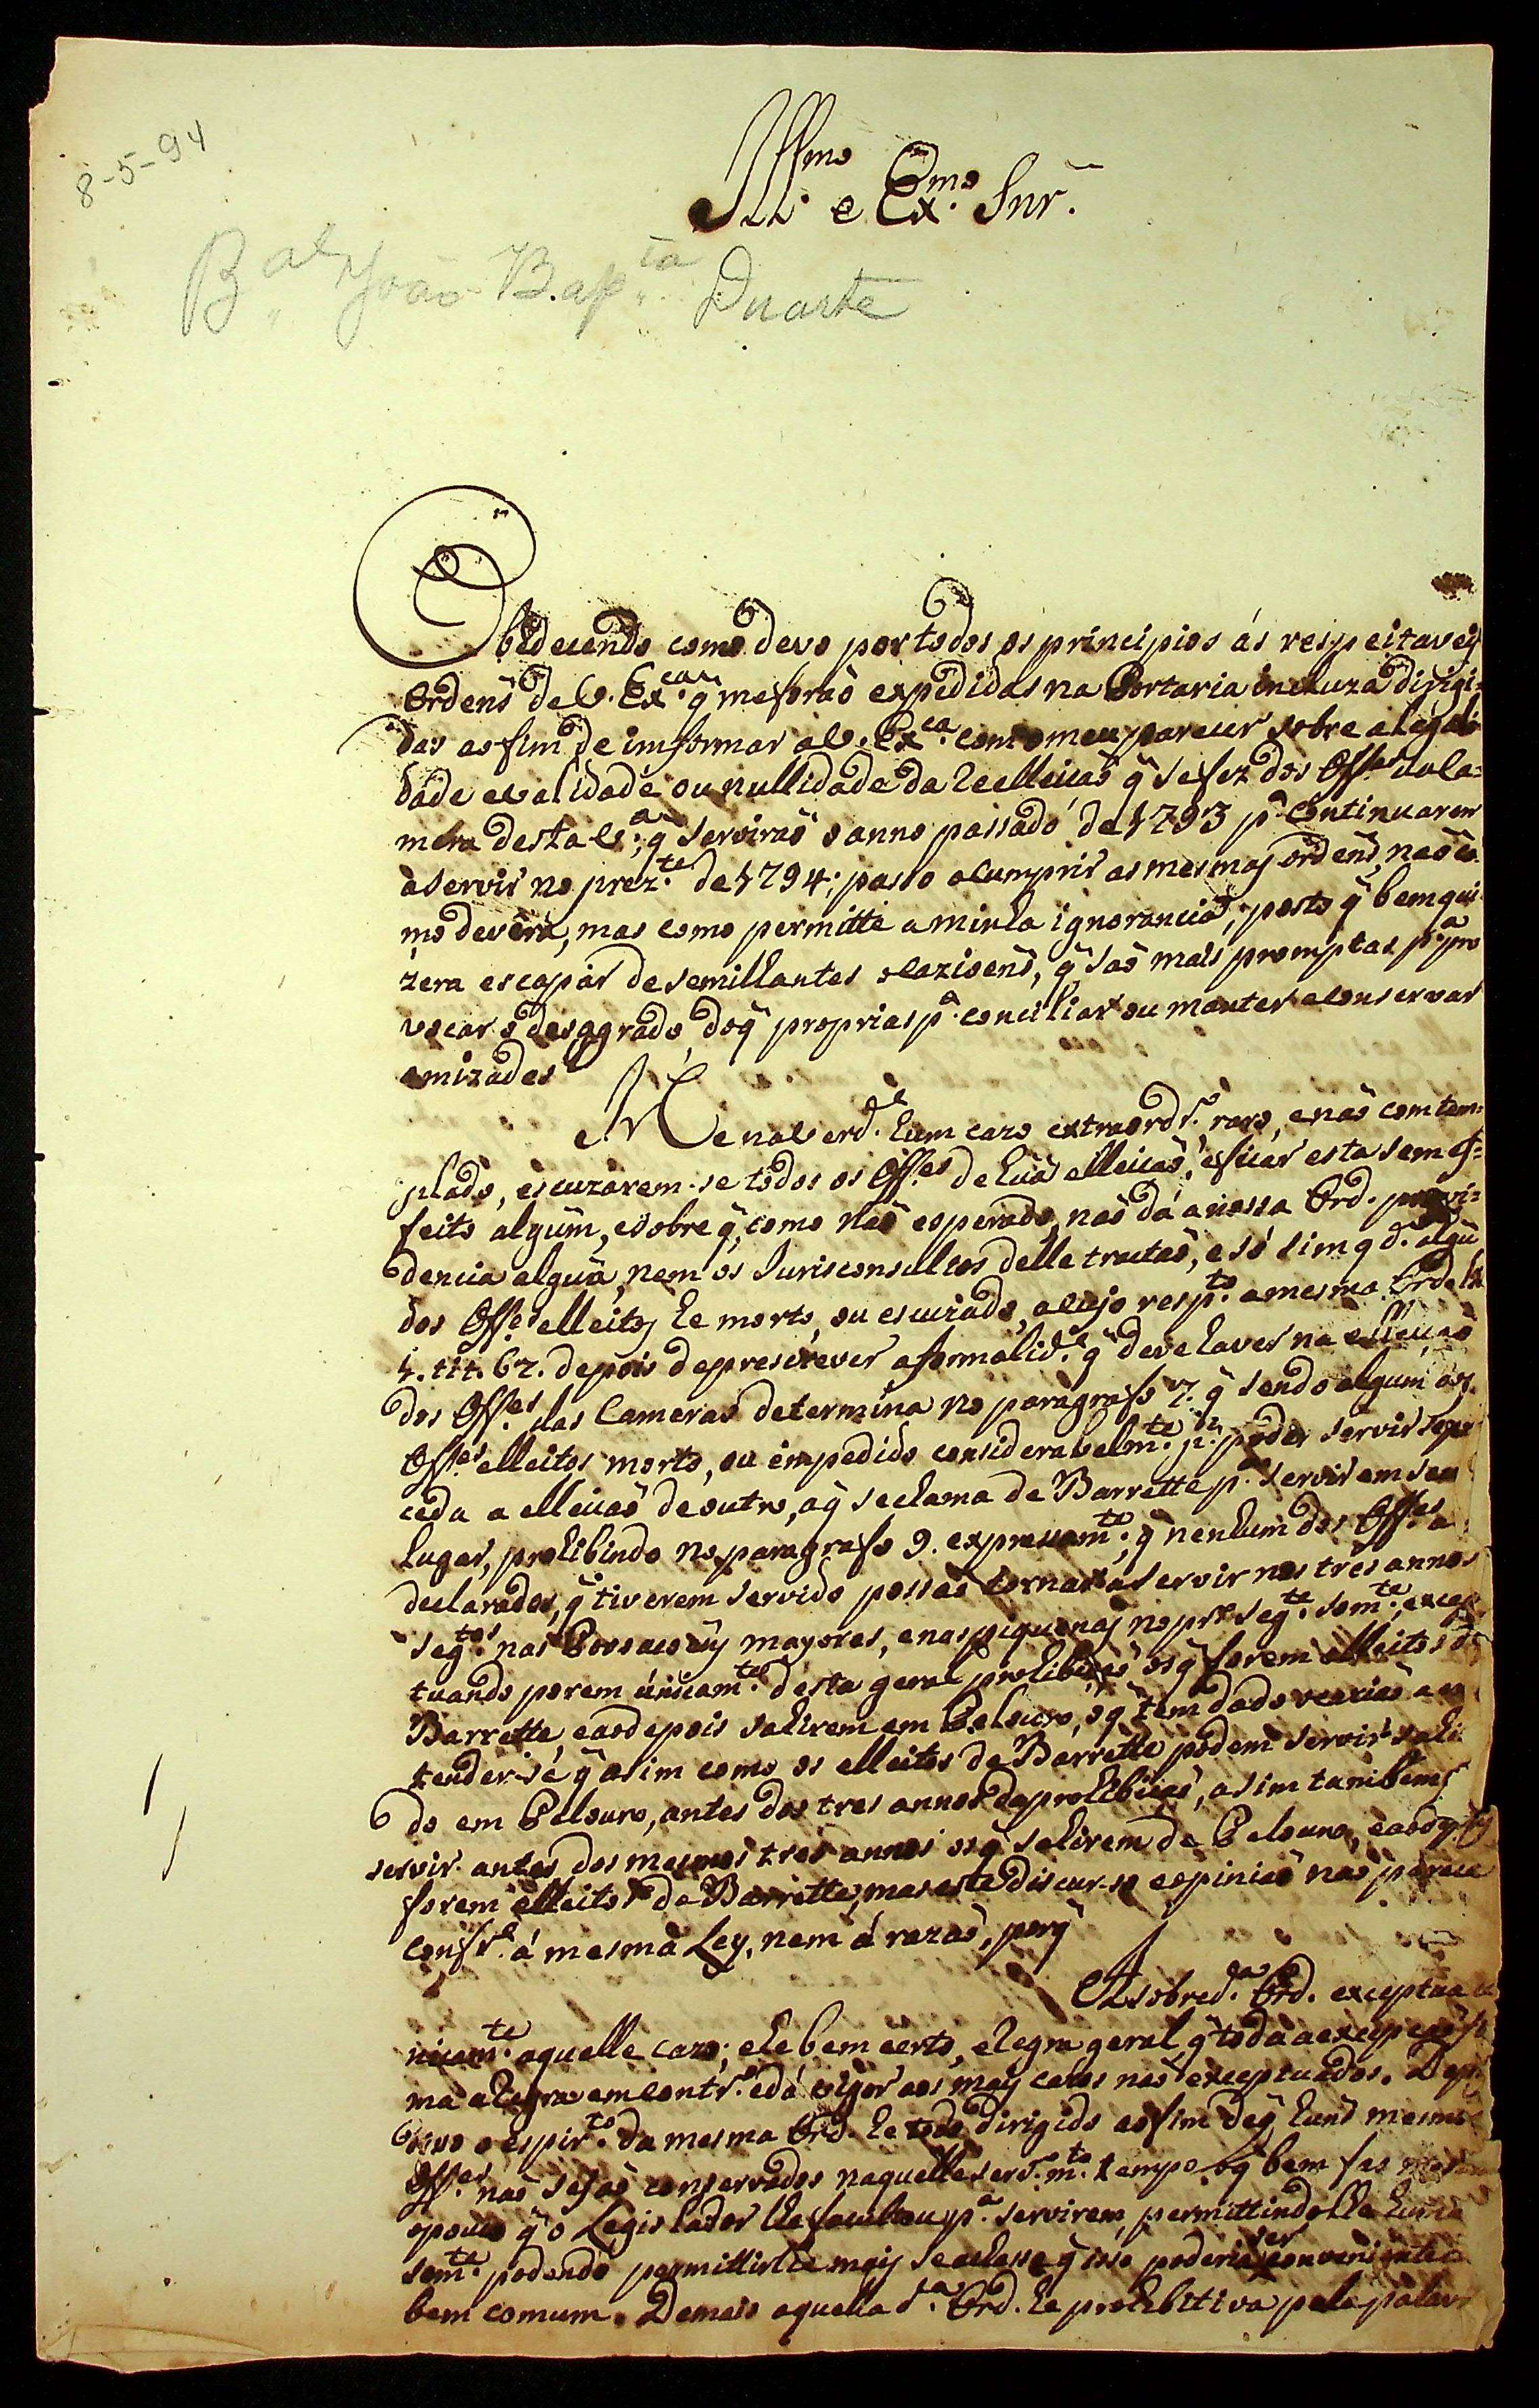 8-5-94
Ill.mo e Ex.mo Snr.
B.el João Bap.ta Duarte
Obedecendo como devo por todos os principios ás respeitaveis
Ordens de V. Ex.ca q̃ me forão expedidas na Portaria incluza dirigi=
das ao fim de imformar a V. Ex.ca com o meu parecer sobre a legali
dade e validade ou nullidade da Reelleicaõ q̃ se fez dos Off.es da Ca=
mera desta V.a, q̃ serviraõ o anno passado de 1793 p.a continuarem
a servir no prez.te de 1794; passo a cumprir as mesmas ordens, naõ co
mo devera, mas como permitte a minha ignorancia, posto q̃ bem qui
zera escapar de semilhantes ocazioens, q̃ saõ mais promptas p.a pro
vocar o desagrado, do q̃ proprias p.a conciliar ou manter e conservar
amizades
He na verd.e hum cazo extraord.ro, raro, e naõ comtem=
plado, escuzarem-se todos os Off.es de huã elleicaõ, e ficar esta sem ef=
feito algum, e sobre q̃, como naõ esperado, naõ dá a nossa Ord. provi=
dencia alguã, nem os Jurisconsultos delle trataõ, e só sim q.do algũ
dos Off.es elleitos he morto, ou escuzado, a cujo resp.to a mesma Ord. L.
1. tit. 67. depois de prescrever a formalid.e q̃ deve haver na elleicaõ
dos Off.es das Cameras determina no paragrafo 7. q̃ sendo algum dos
Off.es elleitos morto, ou impedido consideravelm.te p.a poder servir se pro
ceda a elleicaõ de outro, a q̃ se chama de Barrette p.a servir em seu
lugar, prohibindo no paragrafo 9. expressam.te, q̃ nenhum dos Off.es a
declarados, q̃ tiverem servido possaõ tornar a servir nos tres annos
seg.tes nas Povoacoẽs mayores, e nas piquenas no pr.o seg.te som.te, excep
tuando porem únicam.te desta geral prohibicaõ os q̃ forem elleitos de
Barrette, e ao depois sahirem em Pelouro, o q̃ tem dado ocaziaõ a en
tender-se q̃ asim como os elleitos de Barrette podem servir sahi
do em Pelouro, antes dos tres annos da prohibicaõ, asim tambem
servir antes dos mesmos tres annos os q̃ sahirem de Pelouro, e ao depois
forem elleitos de Barrette; mas este discurso e opiniaõ naõ parece
conf.e á mesma Ley, nem á razaõ, porq̃
A sobred.a Ord. exceptua u
nicam.te aquelle cazo; e he bem certo, e regra geral q̃ toda a excepçaõ fir
ma a regra em contr.o e dá vigor aos mais cazos naõ exceptuados. De
o espir.to da mesma Ord. he todo dirigido ao fim de q̃ huns mesmos
Off.es naõ sejaõ conservados naquelle serv. m.to tempo, o q̃ bem faz
o pouco q̃ o Legislador lhe facultou p.a servirem, permittindolhe hum
som.te podendo permittirlhe mais se achasse q̃ isso poderia ser conveniente
bem comum. Demais aquella d.a Ord. he prohibitiva pela palavr